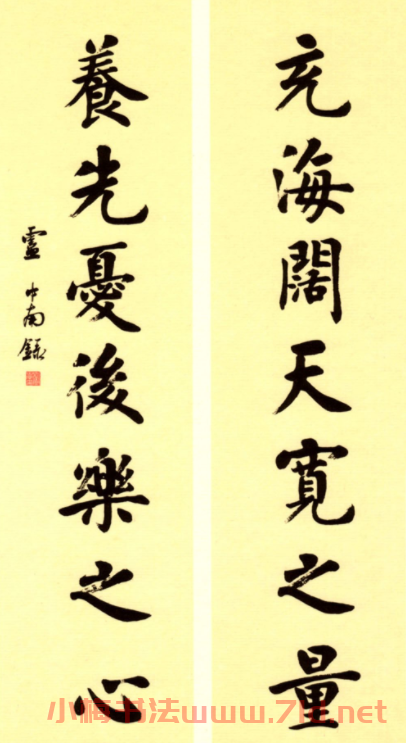 充海闊天寬之量
養先憂後樂之心
盧中南錄
小梅书法www.7ld.net